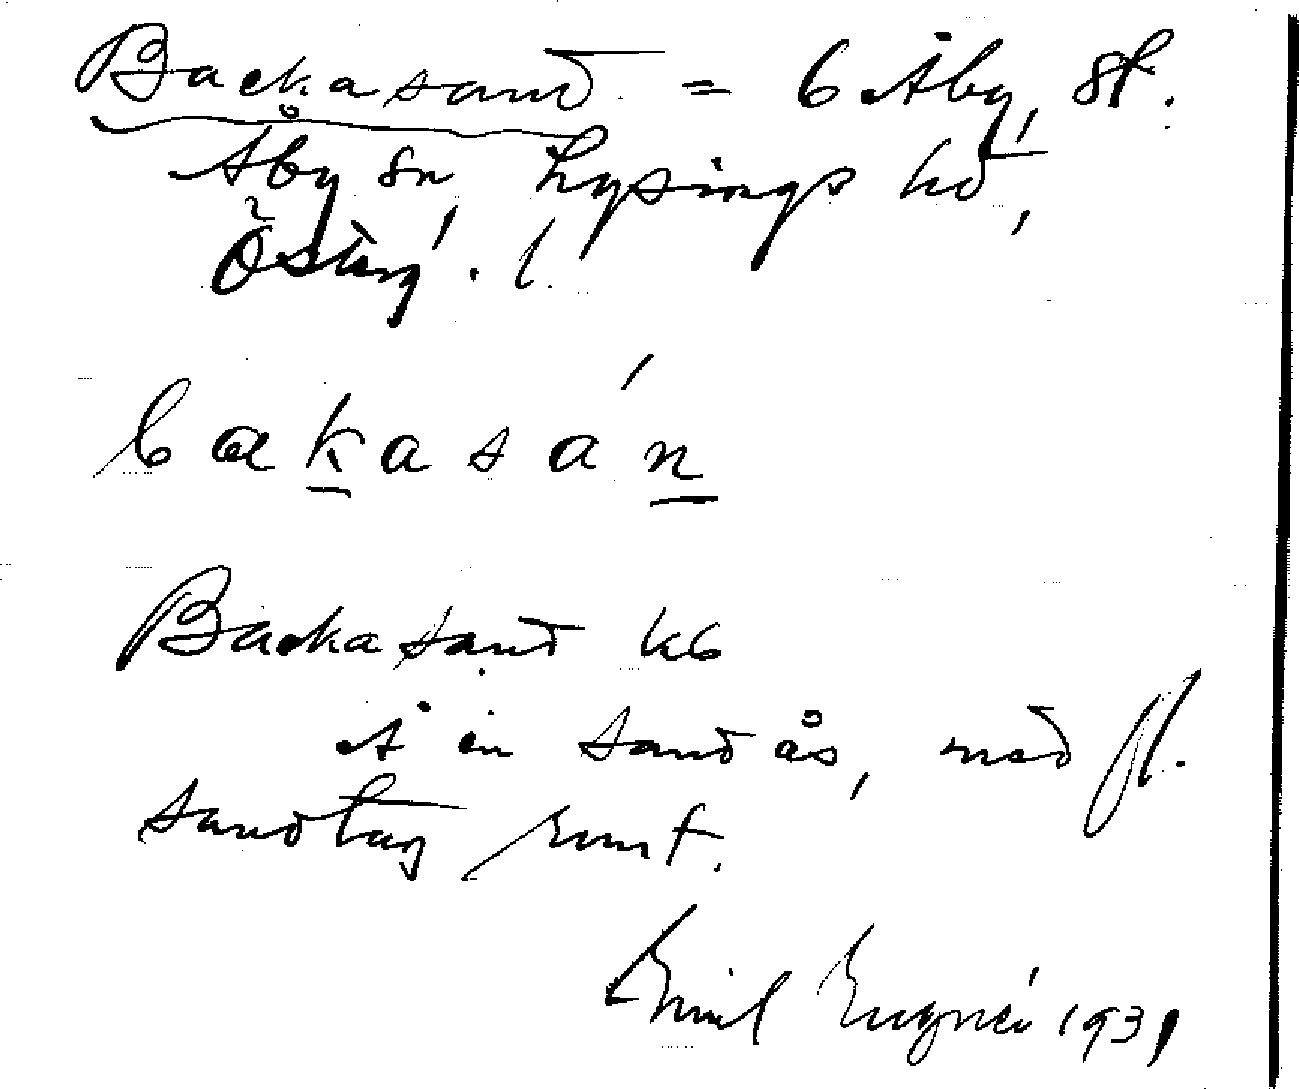 Backasand = 6 Åby, st.
Åby sn Lysings hd,
Österg. l.
bakasán
Backasand kb
Å en sandås, med fl.
sandtag runt.
Emil 1931